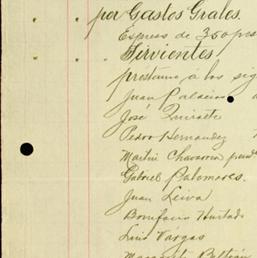 por Gastos Grales.
Express de 350 pes
Sirvientes
préstamo á los sig
Juan Palacios
José
Pedro Hernandez
Martin Chavarria
Gabriel Palomares.
Juan Leiva
Bonifacio Hurtado
Luis Vargas
Margarito Beltrán